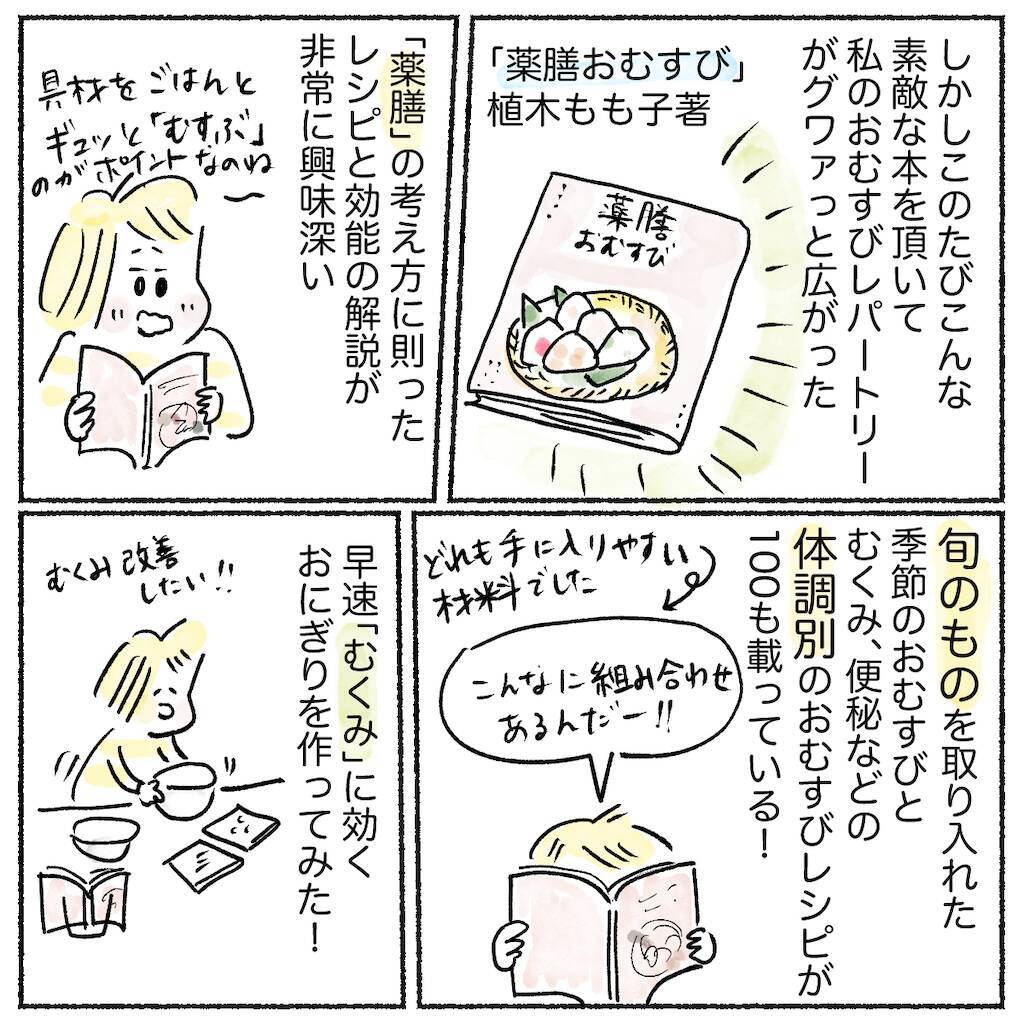 しかしこのたびこんな
素敵な本を頂いて
私のおむすびレパートリー
がグワァっと広がった
「薬膳おむすび」
植木もも子著
薬膳
おむすび
「薬膳」の考え方に則った
レシピと効能の解説が
非常に興味深い
具材をごはんと
ギュッと「むすぶ」
のがポイントなのね
旬のものを取り入れた
季節のおむすびと
むくみ、便秘などの
体調別のおむすびレシピが
100も載っている！
どれも手に入りやすい
材料でした
こんなに組み合わせ
あるんだー!!
早速「むくみ」に効く
おにぎりを作ってみた！
むくみ改善
したい!!